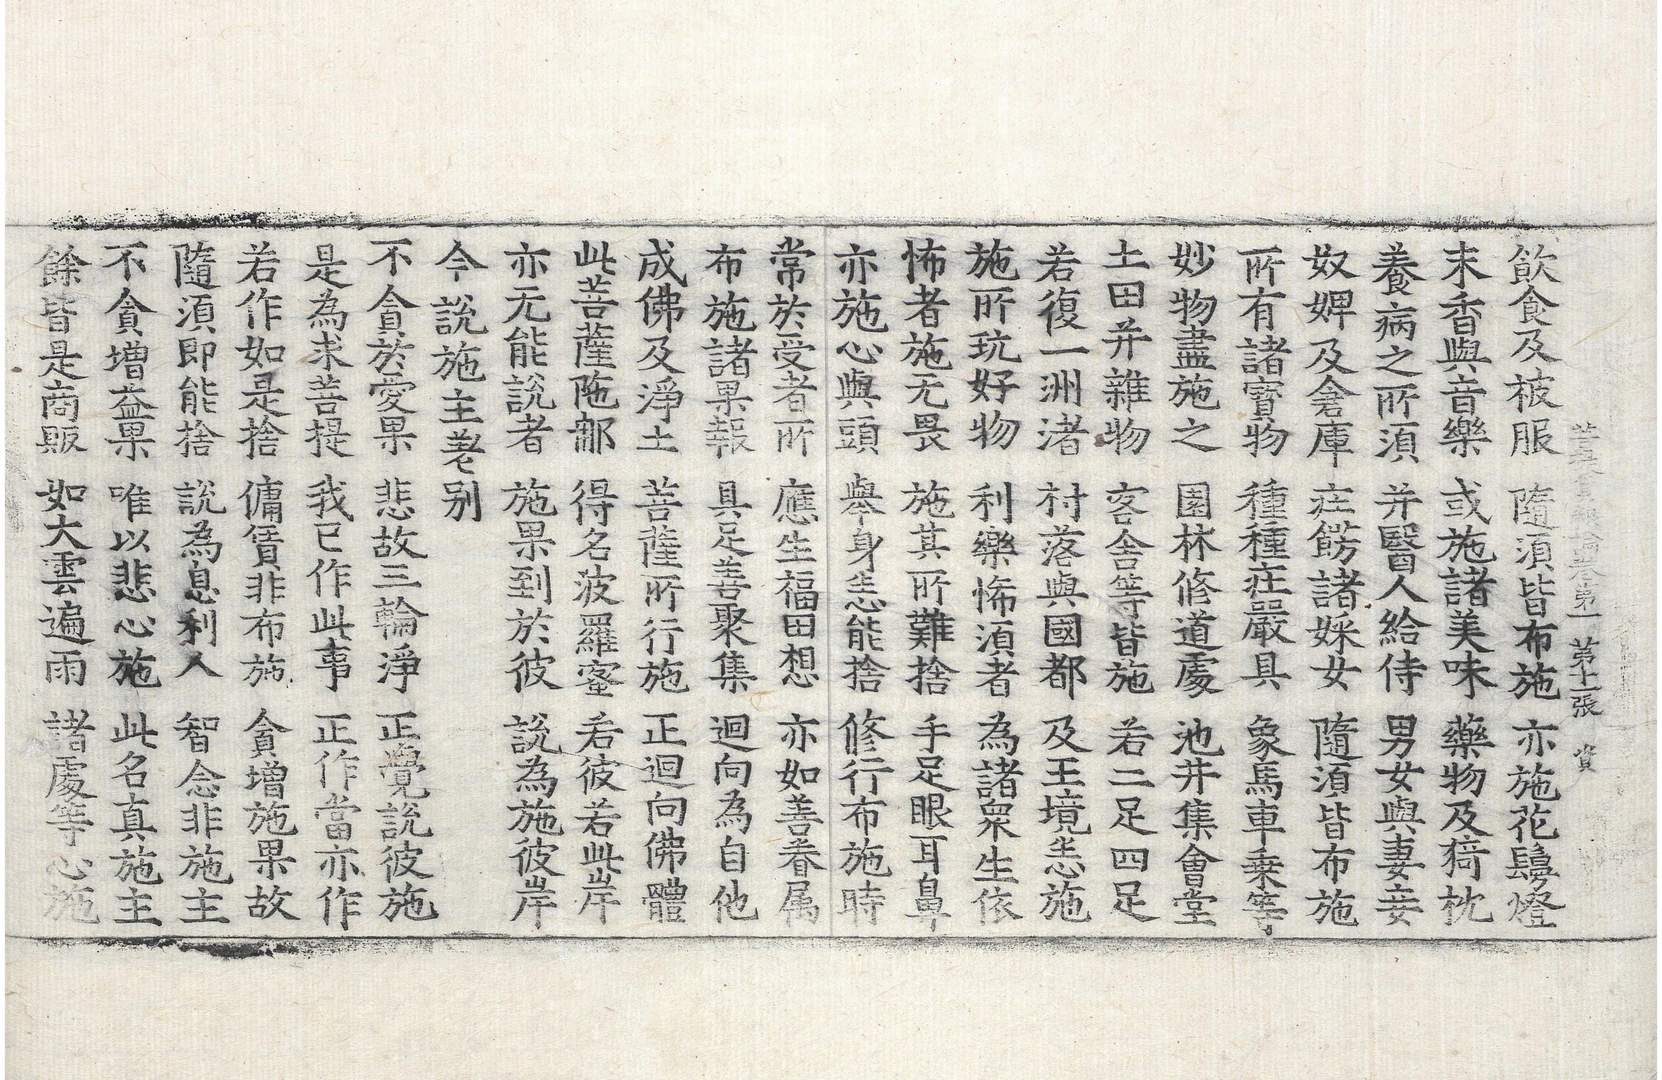 菩提資粮論卷第一 第十一張 資
飲食及被服 隨須皆布施 亦施花鬘燈
末香與音樂 或施諸美味 藥物及猗枕
養病之所須 并醫人給侍 男女與妻妾
奴婢及倉庫 莊餝諸婇女 隨須皆布施
所有諸寶物 種種莊嚴具 象馬車乗等
妙物盡施之 園林修道處 池井集會堂
土田并雜物 客舍等皆施 若二足四足
若復一洲渚 村落與國都 及王境悉施
施所玩好物 利樂怖須者 為諸衆生依
怖者施无畏 施其所難捨 手足眼耳鼻
亦施心與頭 舉身悉能捨 修行布施時
常於受者所 應生福田想 亦如善眷属
布施諸果報 具足善聚集 迴向為自他
成佛及淨土 菩薩所行施 正迴向佛體
此菩薩陁那 得名波羅蜜 若彼若此岸
亦无能說者 施果到於彼 說為施彼岸
今說施主差別
不貪於愛果 悲故三輪淨 正覺說彼施
是為求菩提 我已作此事 正作當亦作
若作如是捨 傭賃非布施 貪增施果故
隨須即能捨 說為息利人 智念非施主
不貪增益果 唯以悲心施 此名真施主
餘皆是商販 如大雲遍雨 諸處等心施